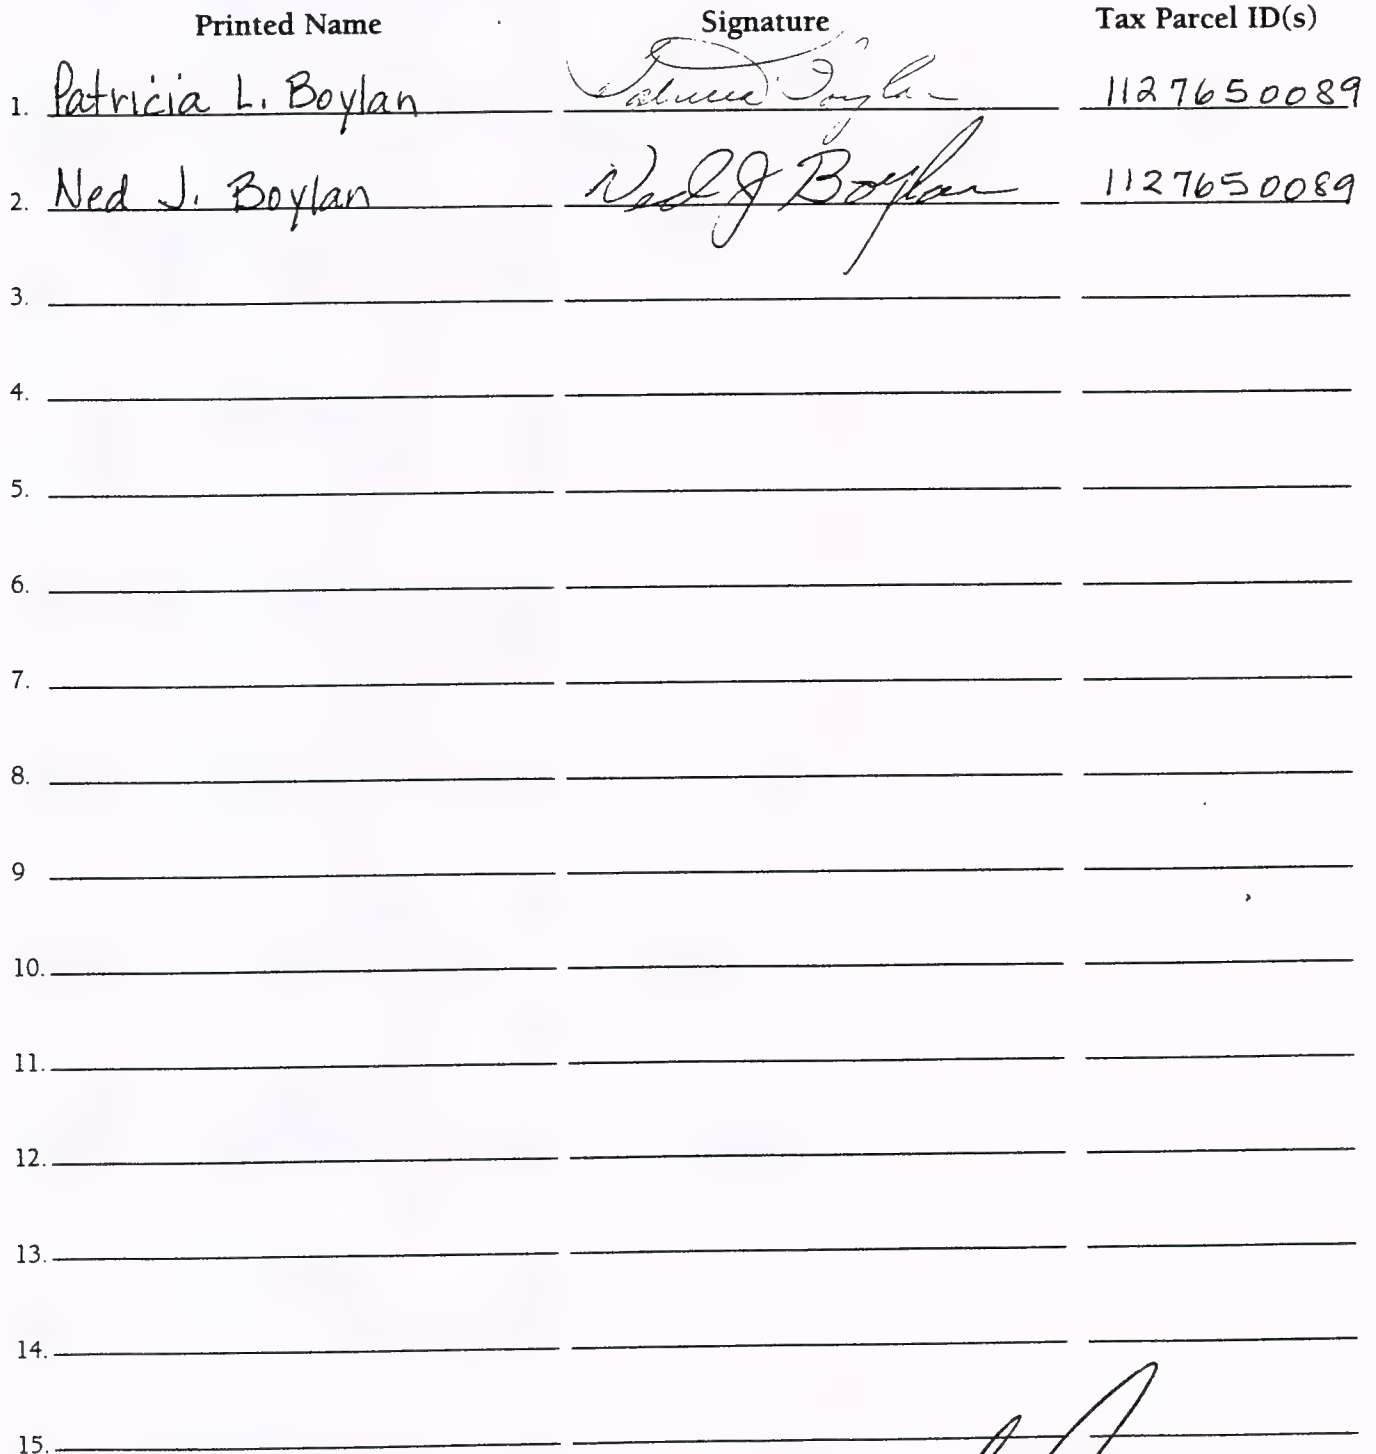 Printed Name Signature Tax Parcel ID(s)
1. Patricia L. Boylan Patricia Boylan 1127650089
2. Ned J. Boylan Ned J Boylan 1127650089
3.
4.
5.
6.
7.
8.
9
10.
11.
12.
13.
14.
15.